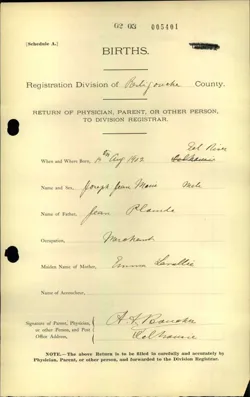 02 03 005401
[Schedule A.]
BIRTHS.
Registration Division of Restigouche County.
RETURN OF PHYSICIAN, PARENT, OR OTHER PERSON,
TO DIVISION REGISTRAR.
Eel River
When and Where Born, Aug 1902
Name and Sex, Joseph Jean Marie Male
Name of Father, Jean Plourde
Occupation, Merchant
Maiden Name of Mother, Emma Lavallie
Name of Accoucheur,
Signature of Parent, Physician,
or other Person, and Post
Office Address,
NOTE.—The above Return is to be filled in carefully and accurately by
Physician, Parent, or other person, and forwarded to the Division Registrar.